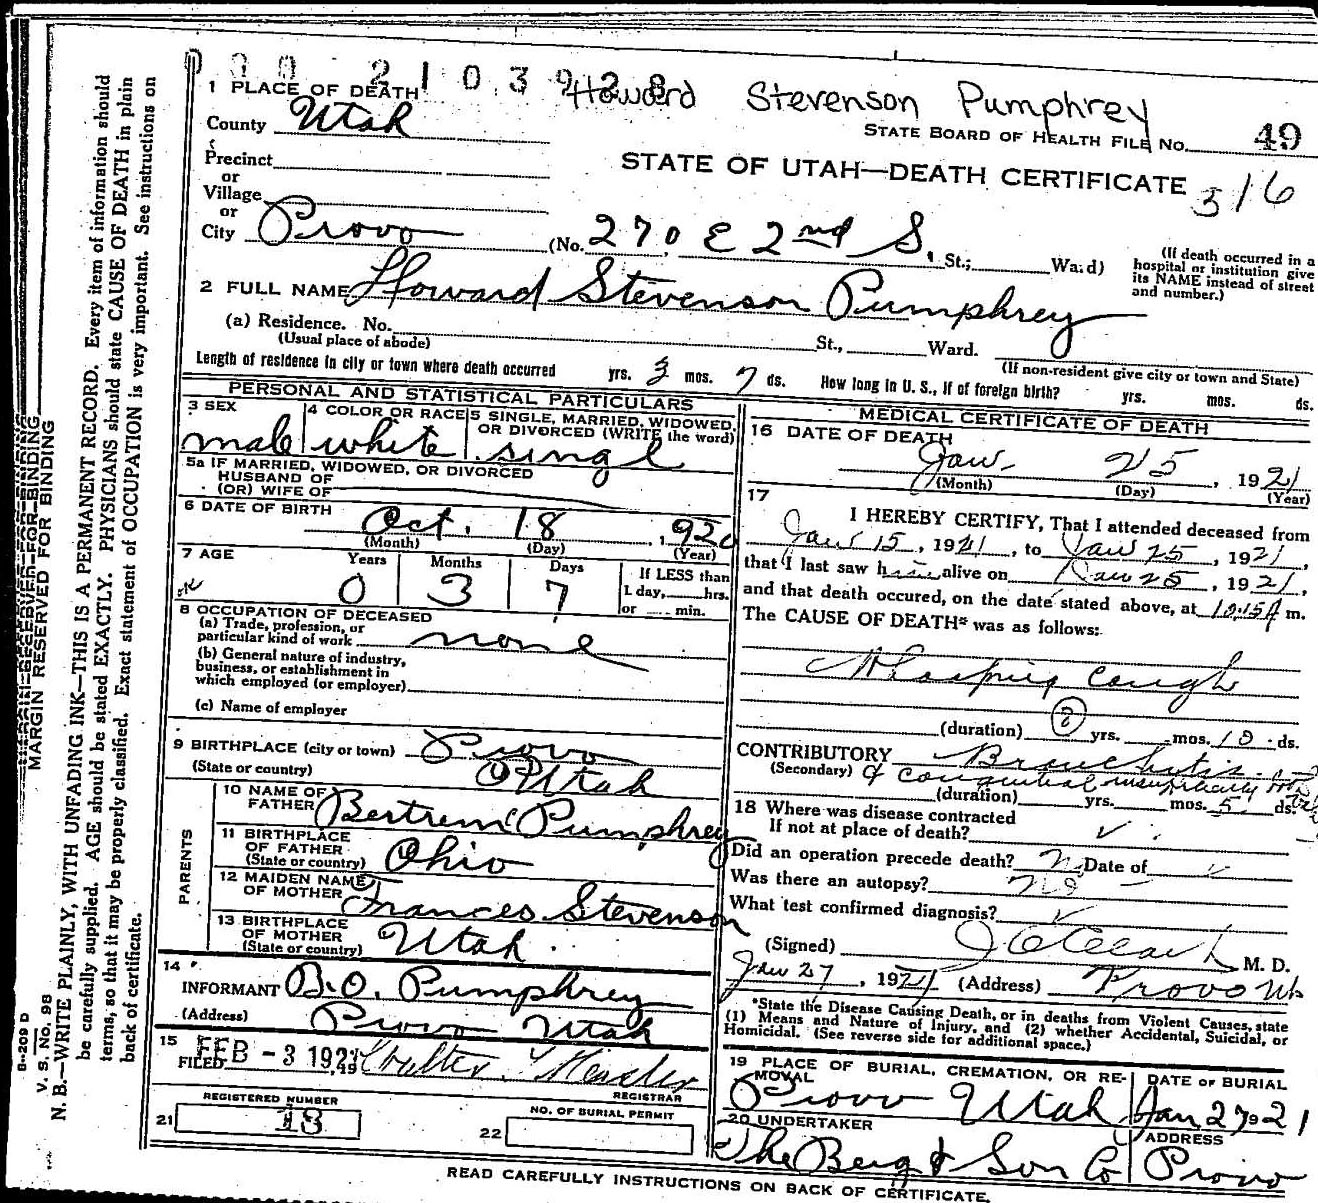 Howard Stevenson Pumphrey
1 PLACE OF DEATH
STATE BOARD OF HEALTH FILE No. 49
County Utah
STATE OF UTAH—DEATH CERTIFICATE 316
Precinct
or
Village
or
City Provo (No. 270 E 2nd S. St.; Ward)
(If death occurred in a hospital or institution give its NAME instead of street and number.)
2 FULL NAME Howard Stevenson Pumphrey
(a) Residence. No. St., Ward.
(Usual place of abode)
(If non-resident give city or town and State)
Length of residence in city or town where death occurred yrs. 3 mos. 7 ds. How long in U. S., if of foreign birth? yrs. mos. ds.
PERSONAL AND STATISTICAL PARTICULARS
3 SEX male
4 COLOR OR RACE white
5 SINGLE, MARRIED, WIDOWED, OR DIVORCED (WRITE the word) singl
5a IF MARRIED, WIDOWED, OR DIVORCED
HUSBAND OF
(OR) WIFE OF
6 DATE OF BIRTH Oct. 18, 1920
(Month) (Day) (Year)
7 AGE Years Months Days If LESS than
0 3 7 1 day, hrs.
or min.
8 OCCUPATION OF DECEASED
(a) Trade, profession, or
particular kind of work none
(b) General nature of industry,
business, or establishment in
which employed (or employer)
(c) Name of employer
9 BIRTHPLACE (city or town) Provo
(State or country) Utah
PARENTS
10 NAME OF FATHER Bertrem Pumphrey
11 BIRTHPLACE OF FATHER (State or country) Ohio
12 MAIDEN NAME OF MOTHER Frances Stevenson
13 BIRTHPLACE OF MOTHER (State or country) Utah
14 INFORMANT B.O. Pumphrey
(Address) Provo Utah
15 FILED FEB -3 1921 Walter
REGISTRAR
REGISTERED NUMBER
21 13
NO. OF BURIAL PERMIT
22
MEDICAL CERTIFICATE OF DEATH
16 DATE OF DEATH
Jan. 25, 1921
(Month) (Day) (Year)
17
I HEREBY CERTIFY, That I attended deceased from
Jan 15, 1921, to Jan 25, 1921,
that I last saw him alive on Jan 25, 1921,
and that death occured, on the date stated above, at 10:15A m.
The CAUSE OF DEATH* was as follows:
Whooping Cough
(duration) yrs. mos. 10 ds.
CONTRIBUTORY Bronchitis
(Secondary) & congenital insufficiency
(duration) yrs. mos. 5 ds.
18 Where was disease contracted
If not at place of death?
Did an operation precede death? No Date of
Was there an autopsy? No
What test confirmed diagnosis?
(Signed) M. D.
Jan 27, 1921 (Address) Provo Ut
*State the Disease Causing Death, or in deaths from Violent Causes, state
(1) Means and Nature of Injury, and (2) whether Accidental, Suicidal, or
Homicidal. (See reverse side for additional space.)
19 PLACE OF BURIAL, CREMATION, OR REMOVAL Provo Utah
DATE OF BURIAL Jan 27 1921
20 UNDERTAKER The Berg & Son Co
ADDRESS Provo
READ CAREFULLY INSTRUCTIONS ON BACK OF CERTIFICATE.
MARGIN RESERVED FOR BINDING
N. B.—WRITE PLAINLY, WITH UNFADING INK—THIS IS A PERMANENT RECORD. Every item of information should
be carefully supplied. AGE should be stated EXACTLY. PHYSICIANS should state CAUSE OF DEATH in plain
terms, so that it may be properly classified. Exact statement of OCCUPATION is very important. See instructions on
back of certificate.
V. S. No. 98
B-209 D